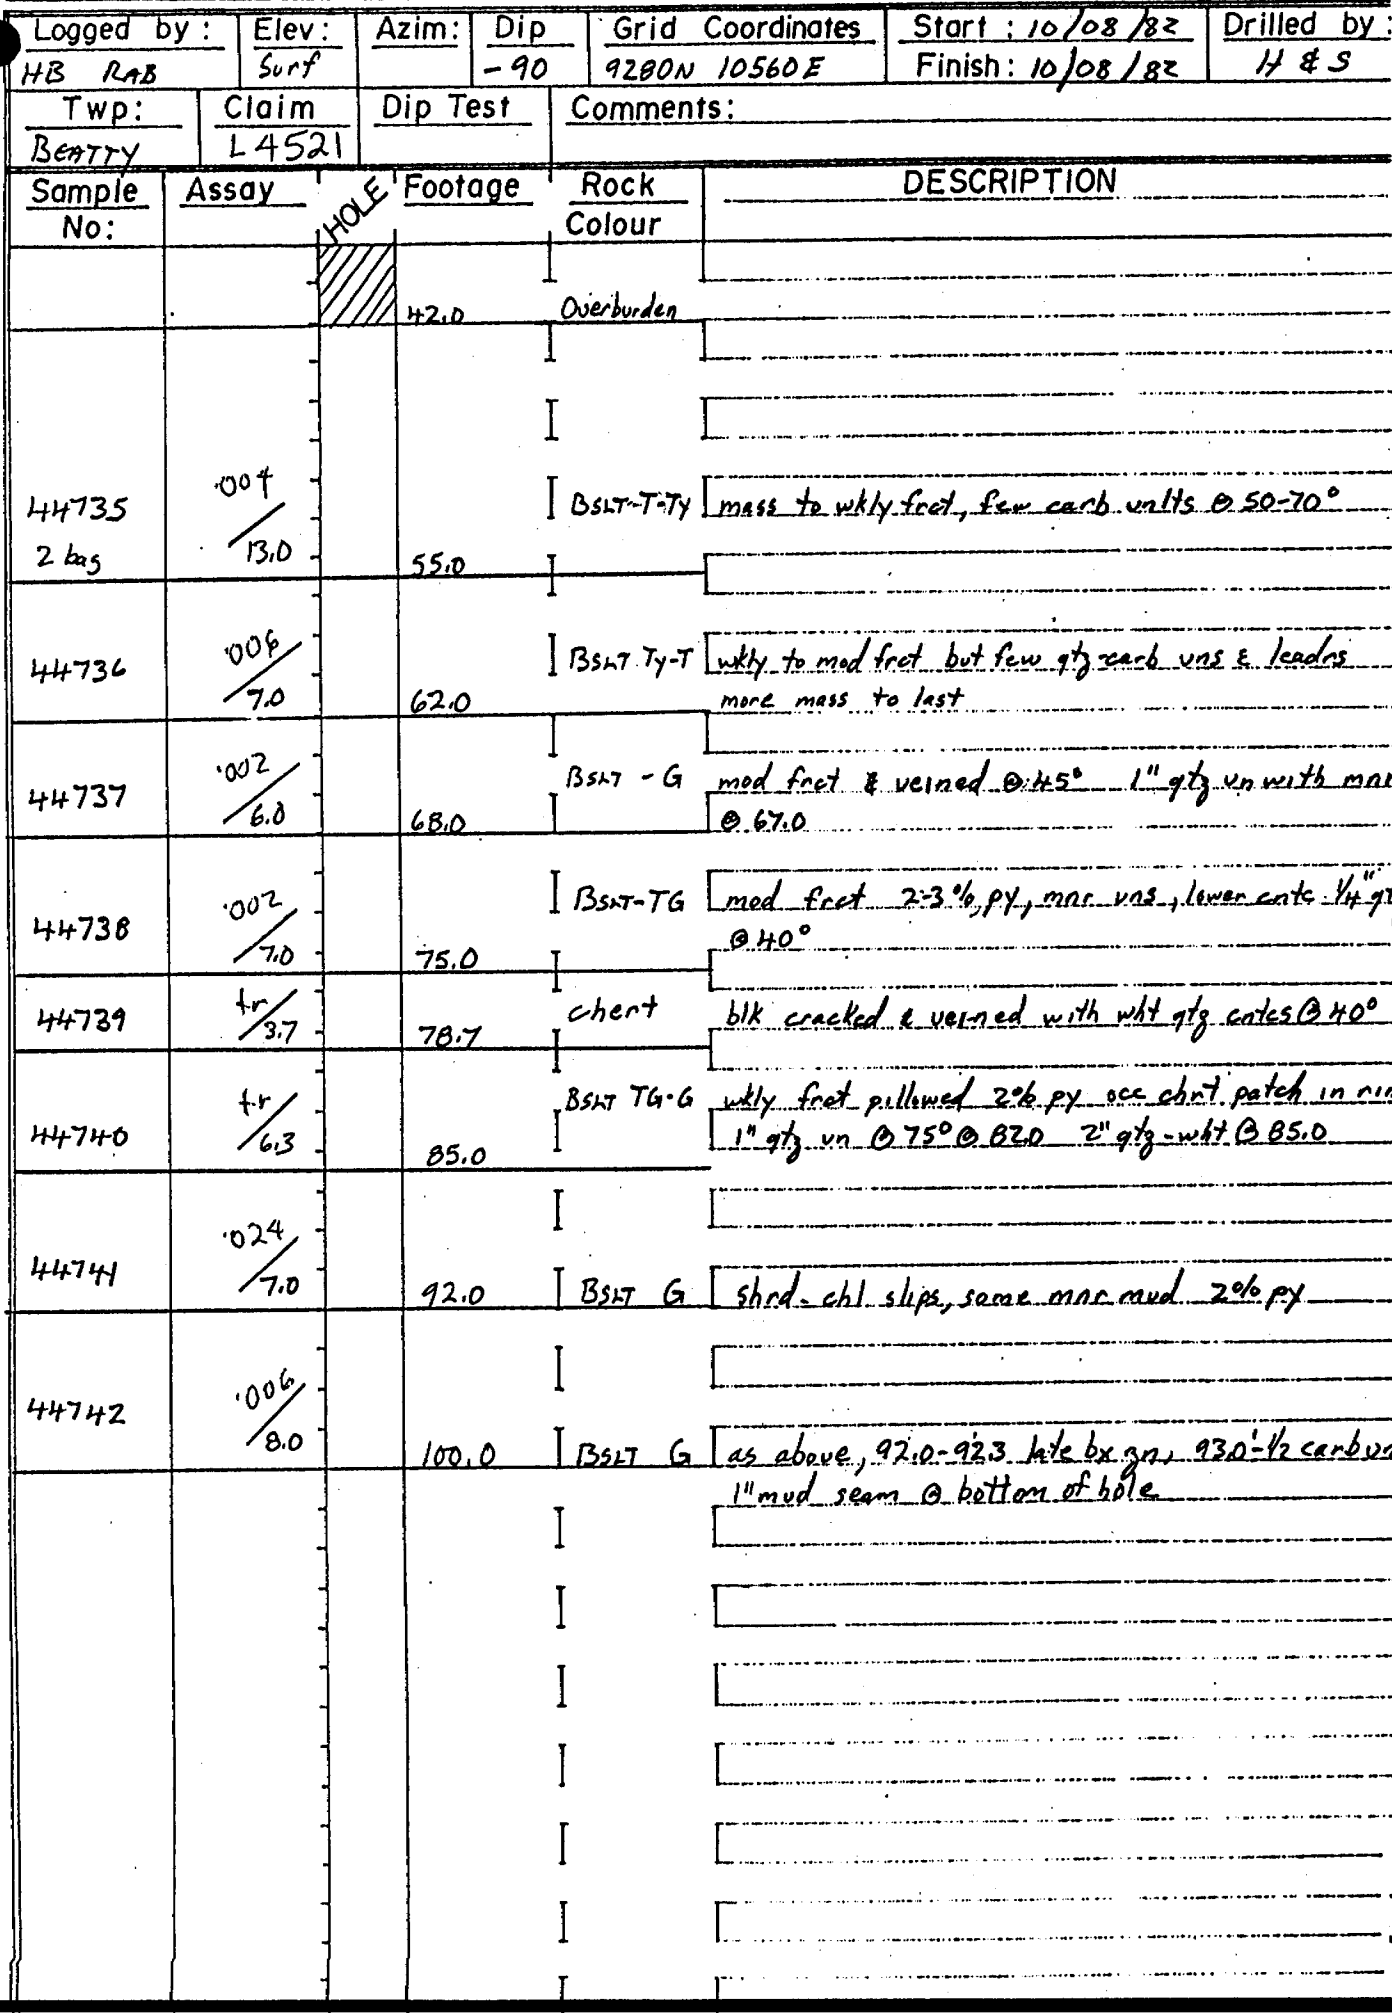 Logged by: Elev: Azim: Dip Grid Coordinates Start: 10/08/82 Drilled by:
HB RAB Surf -90 9280N 10560E Finish: 10/08/82 H & S
Twp: Claim Dip Test Comments:
BEATTY L4521
Sample No: Assay HOLE Footage Rock Colour DESCRIPTION
42.0 Overburden
44735 .004/13.0 BSLT-T-Ty mass to wkly frct, few carb vnlts @ 50-70°
2 bag 55.0
44736 .006/7.0 62.0 BSLT Ty-T wkly to mod frct but few qtz-carb vns & leadrs
more mass to last
44737 .002/6.0 68.0 BSLT - G mod frct & veined @ 45° 1" qtz vn with mnr
@ 67.0
44738 .002/7.0 75.0 BSLT-TG mod frct 2-3% py, mnr vns, lower cntc 1/4" qt
@ 40°
44739 tr/3.7 78.7 chert blk cracked & veined with wht qtz cntcs @ 40°
44740 tr/6.3 85.0 BSLT TG-G wkly frct pillowed 2% py occ chrt patch in rim
1" qtz vn @ 75° @ 82.0 2" qtz-wht @ 85.0
44741 .024/7.0 92.0 BSLT G shrd-chl slips, some mnr mud 2% py
44742 .006/8.0 100.0 BSLT G as above, 92.0-92.3 late bx zn, 93.0'-1/2 carb vn
1" mud seam @ bottom of hole